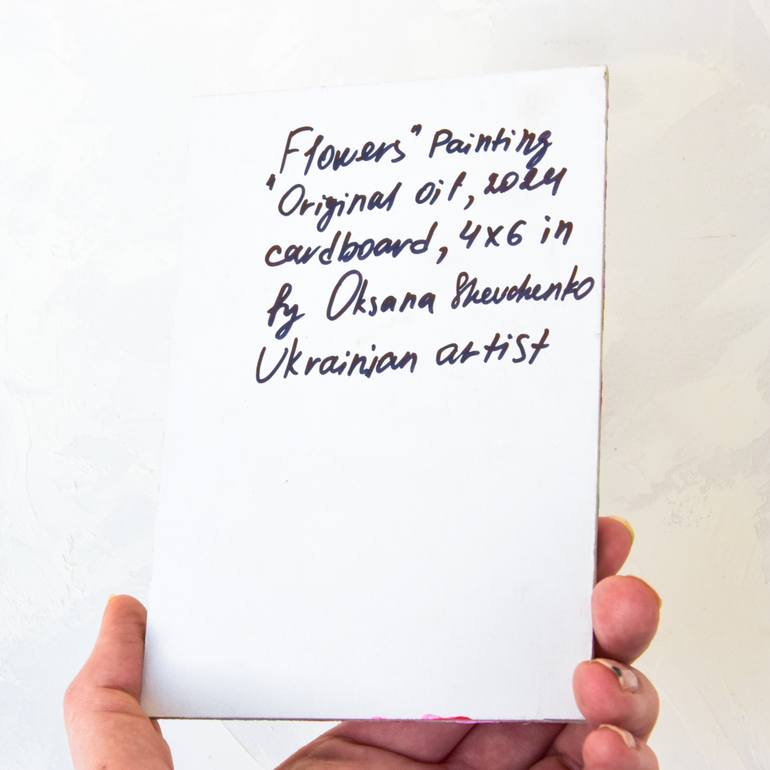 Flowers" Painting
"Original oil, 2024
cardboard, 4x6 in
by Oksana Shevchenko
Ukrainian artist